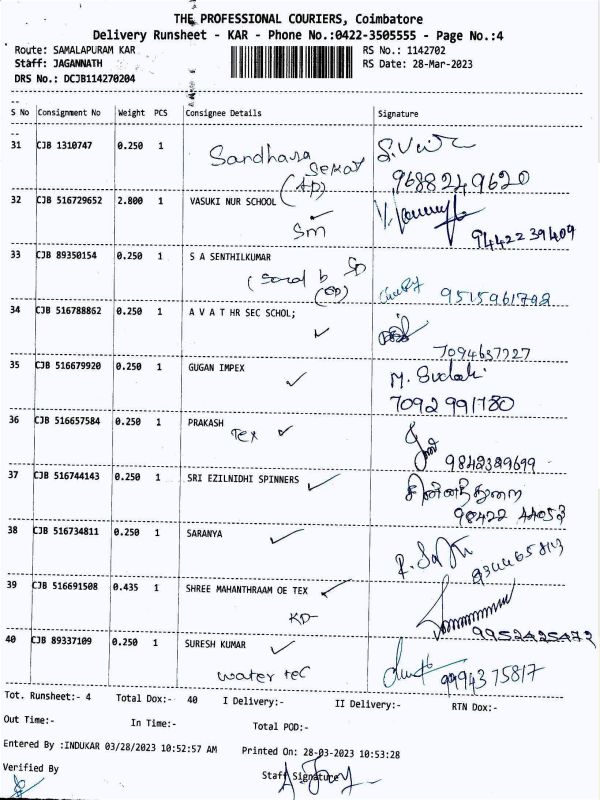 THE PROFESSIONAL COURIERS, Coimbatore
Delivery Runsheet - KAR - Phone No.:0422-3505555 - Page No.:4
Route: SAMALAPURAM KAR
RS No.: 1142702
Staff: JAGANNATH
RS Date: 28-Mar-2023
DRS No.: DCJB114270204
S No Consignment No Weight PCS Consignee Details Signature
31 CJB 1310747 0.250 1
Sandhara
Sekar
(AP)
9688249620
32 CJB 516729652 2.800 1 VASUKI NUR SCHOOL
Sm
94422 39409
33 CJB 89350154 0.250 1 S A SENTHILKUMAR
9515961792
34 CJB 516788862 0.250 1 A V A T HR SEC SCHOL;
7094637727
35 CJB 516679920 0.250 1 GUGAN IMPEX
7092 991780
36 CJB 516657584 0.250 1 PRAKASH
Tex
9842329699
37 CJB 516744143 0.250 1 SRI EZILNIDHI SPINNERS
சின்னத்துரை
98422 44053
38 CJB 516734811 0.250 1 SARANYA
39 CJB 516691508 0.435 1 SHREE MAHANTHRAAM OE TEX
KD-
9952425472
40 CJB 89337109 0.250 1 SURESH KUMAR
water tec
99943 75817
Tot. Runsheet:- 4 Total Dox:- 40 I Delivery:- II Delivery:- RTN Dox:-
Out Time:- In Time:- Total POD:-
Entered By :INDUKAR 03/28/2023 10:52:57 AM Printed On: 28-03-2023 10:53:28
Verified By
Staff Signature